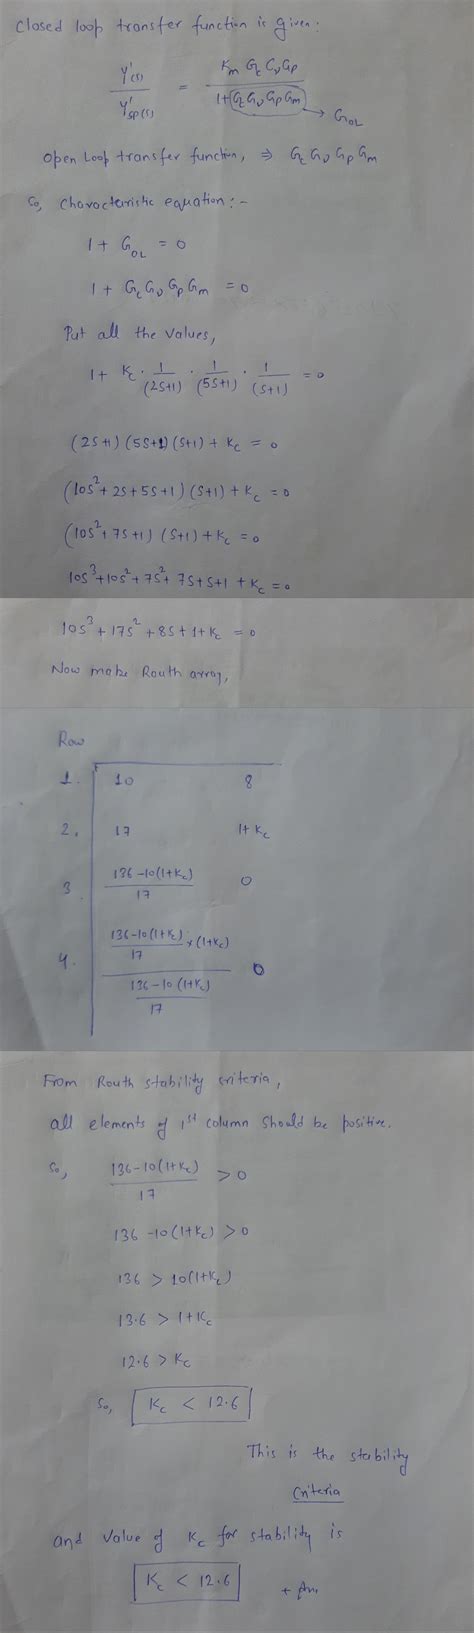 Closed loop transfer function is given:
Y'(s) / Y'sp(s) = Km Gc Gv Gp / 1+ Gc Gv Gp Gm → GOL
Open Loop transfer function, ⇒ Gc Gv Gp Gm
So, Characteristic equation:-
1 + GOL = 0
1 + Gc Gv Gp Gm = 0
Put all the values,
1 + Kc · 1/(2s+1) · 1/(5s+1) · 1/(s+1) = 0
(2s+1) (5s+1) (s+1) + Kc = 0
(10s² + 2s + 5s + 1) (s+1) + Kc = 0
(10s² + 7s + 1) (s+1) + Kc = 0
10s³ + 10s² + 7s² + 7s + s + 1 + Kc = 0
10s³ + 17s² + 8s + 1 + Kc = 0
Now make Routh array,
Row
1. 10 8
2. 17 1+Kc
3 136-10(1+Kc) / 17 0
4. 136-10(1+Kc) / 17 × (1+Kc) / 136-10(1+Kc) / 17 0
From Routh stability criteria,
all elements of 1st column should be positive.
So, 136-10(1+Kc) / 17 > 0
136 -10(1+Kc) > 0
136 > 10(1+Kc)
13.6 > 1+Kc
12.6 > Kc
So, Kc < 12.6
This is the stability
Criteria
and value of Kc for stability is
Kc < 12.6 ← Ans